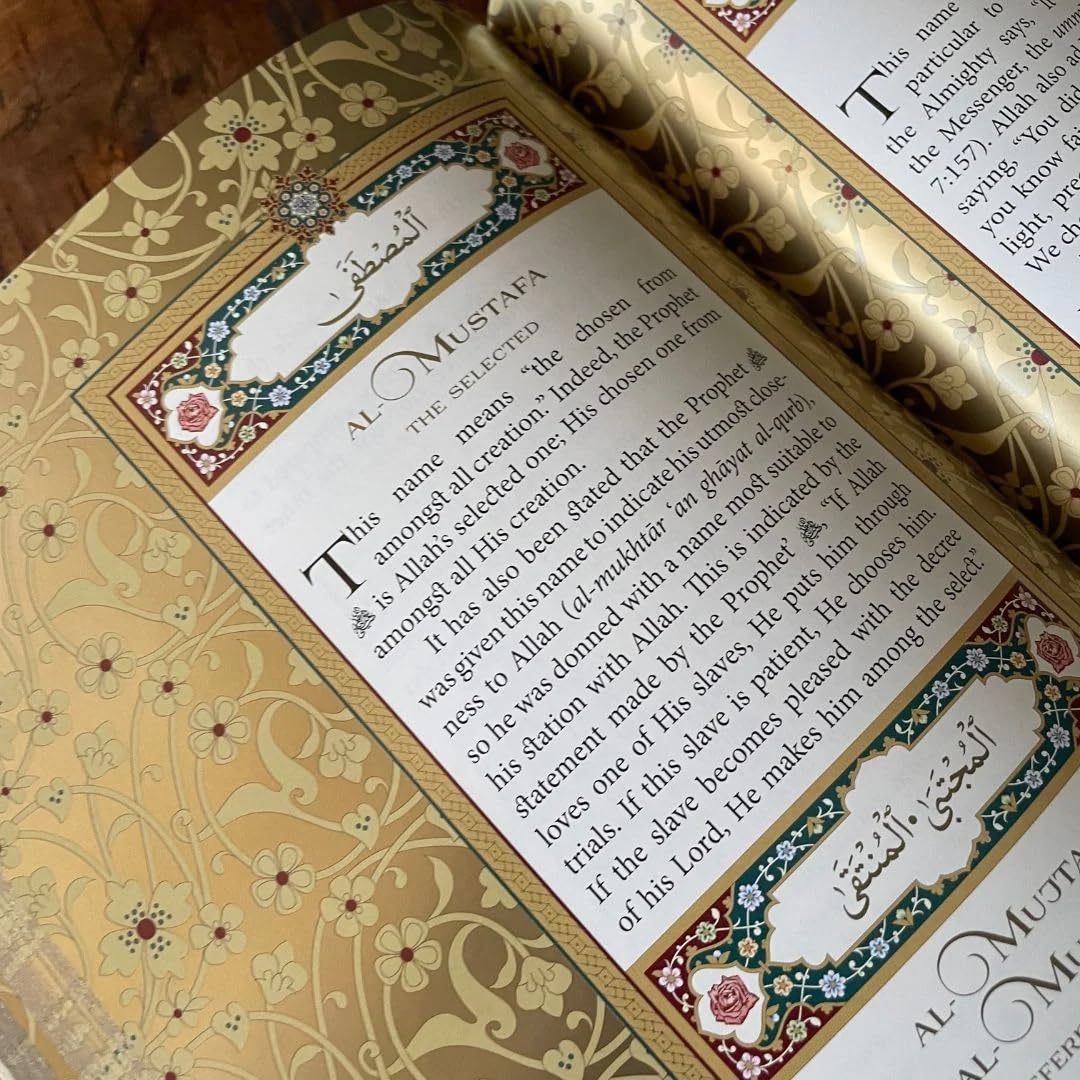 ٱلْمُصْطَفَىٰ
AL-MUSTAFA
THE SELECTED
This name means “the chosen from
amongst all creation.” Indeed, the Prophet
ﷺ is Allah’s selected one; His chosen one from
amongst all His creation.
It has also been stated that the Prophet ﷺ
was given this name to indicate his utmost close-
ness to Allah (al-mukhtār ‘an ghāyat al-qurb),
so he was donned with a name most suitable to
his station with Allah. This is indicated by the
statement made by the Prophet ﷺ “If Allah
loves one of His slaves, He puts him through
trials. If this slave is patient, He chooses him.
If the slave becomes pleased with the decree
of his Lord, He makes him among the select.”
ٱلْمُجْتَبَىٰ • ٱلْمُنْتَقَىٰ
AL-MUJTA
AL-MU
This name
particular to
the Almighty says,
the Messenger, the umm
7:157). Allah also ad
saying, “You did
you know fai
light, pre
We ch